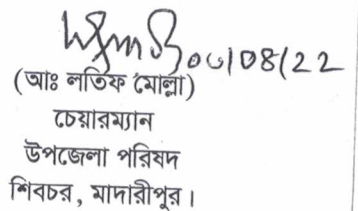 ০৩/০৪/২২
(আঃ লতিফ মোল্লা)
চেয়ারম্যান
উপজেলা পরিষদ
শিবচর, মাদারীপুর।